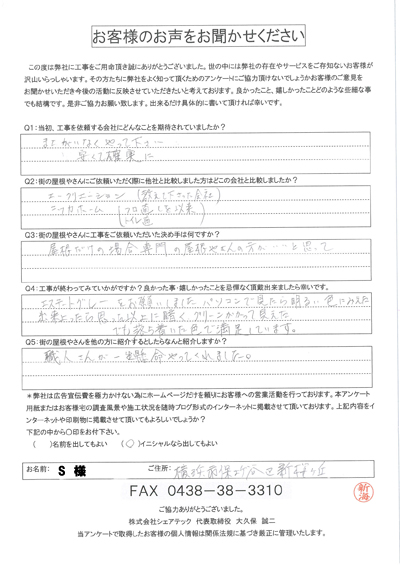 お客様のお声をお聞かせください
この度は弊社に工事をご用命頂き誠にありがとうございました。世の中には弊社の存在やサービスをご存知ないお客様が
沢山いらっしゃいます。その方たちに弊社をよく知って頂くためのアンケートにご協力頂けないでしょうかお客様のご意見を
お聞かせいただき今後の活動に反映させていただきたいと考えております。良かったこと、嬉しかったことどのような些細な事
でも結構です。是非ご協力お願い致します。出来るだけ具体的に書いて頂ければ幸いです。
Q1：当初、工事を依頼する会社にどんなことを期待されていましたか？
まちがいなくやって下さい
早くて確実に
Q2：街の屋根やさんにご依頼いただく際に他社と比較しました方はどこの会社と比較しましたか？
(教えて下さった会社)
Q3：街の屋根やさんに工事をご依頼いただいた決め手は何ですか？
屋根だけの場合専門の屋根やさんの方がいいと思って
Q4：工事が終わってみていかがですか？良かった事・嬉しかったことを忌憚なく頂戴出来ましたら幸いです。
エステートグレーをお願いしました パソコンで見たら明るい色にみえた
出来上ったら思った以上に暗く グリーンかかって見えた
でも落ち着いた色で満足しています。
Q5：街の屋根やさんを他の方に紹介するとしたらなんと紹介しますか？
職人さんが一生懸命やってくれました。
＊弊社は広告宣伝費を極力かけない為にホームページだけを頼りにお客様への営業活動を行っております。本アンケート
用紙またはお客様宅の調査風景や施工状況を随時ブログ形式のインターネットに掲載させて頂いております。上記内容をイ
ンターネットや印刷物に掲載させて頂いてもよろしいでしょうか？
下記の中から〇印をお付下さい。
（　）名前を出してもよい　（〇）イニシャルなら出してもよい
お名前： S 様　ご住所： 横浜市保土ヶ谷区新桜ヶ丘
FAX 0438-38-3310
新海
ご協力ありがとうございました。
株式会社シェアテック 代表取締役 大久保 誠二
当アンケートで取得したお客様の個人情報は関係法規に基づき厳正に管理いたします。